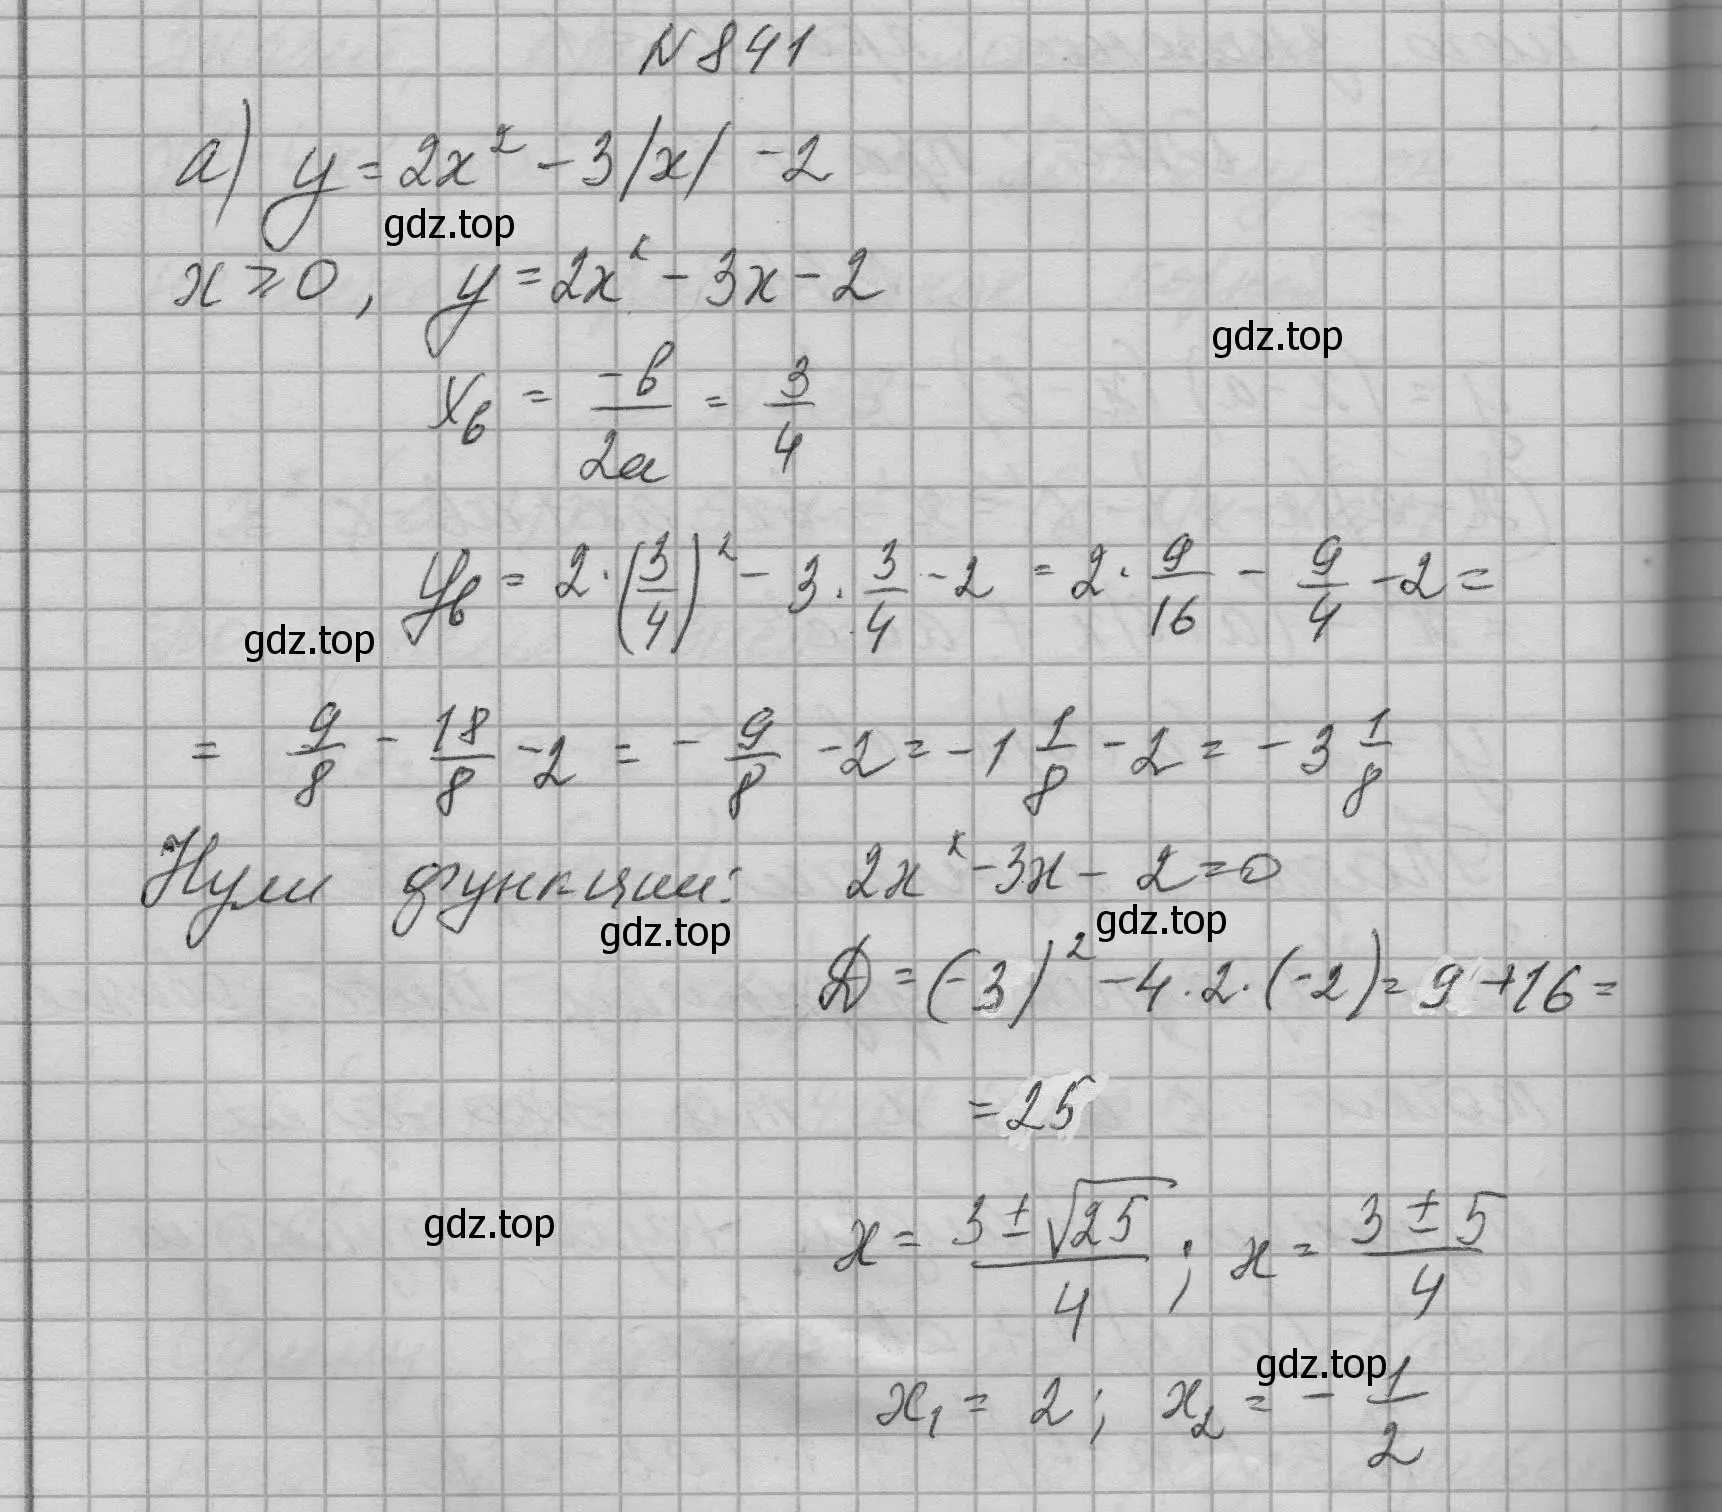 N 841
а) y = 2x² - 3|x| - 2
gdz.top
x ≥ 0, y = 2x² - 3x - 2
gdz.top
xв = -b/2a = 3/4
yв = 2·(3/4)² - 3·3/4 - 2 = 2·9/16 - 9/4 - 2 =
gdz.top
= 9/8 - 18/8 - 2 = -9/8 - 2 = -1 1/8 - 2 = -3 1/8
Нули функции: 2x² - 3x - 2 = 0
gdz.top gdz.top
D = (-3)² - 4·2·(-2) = 9 + 16 =
= 25
gdz.top
x = (3 ± √25)/4; x = (3 ± 5)/4
gdz.top
x₁ = 2; x₂ = -1/2